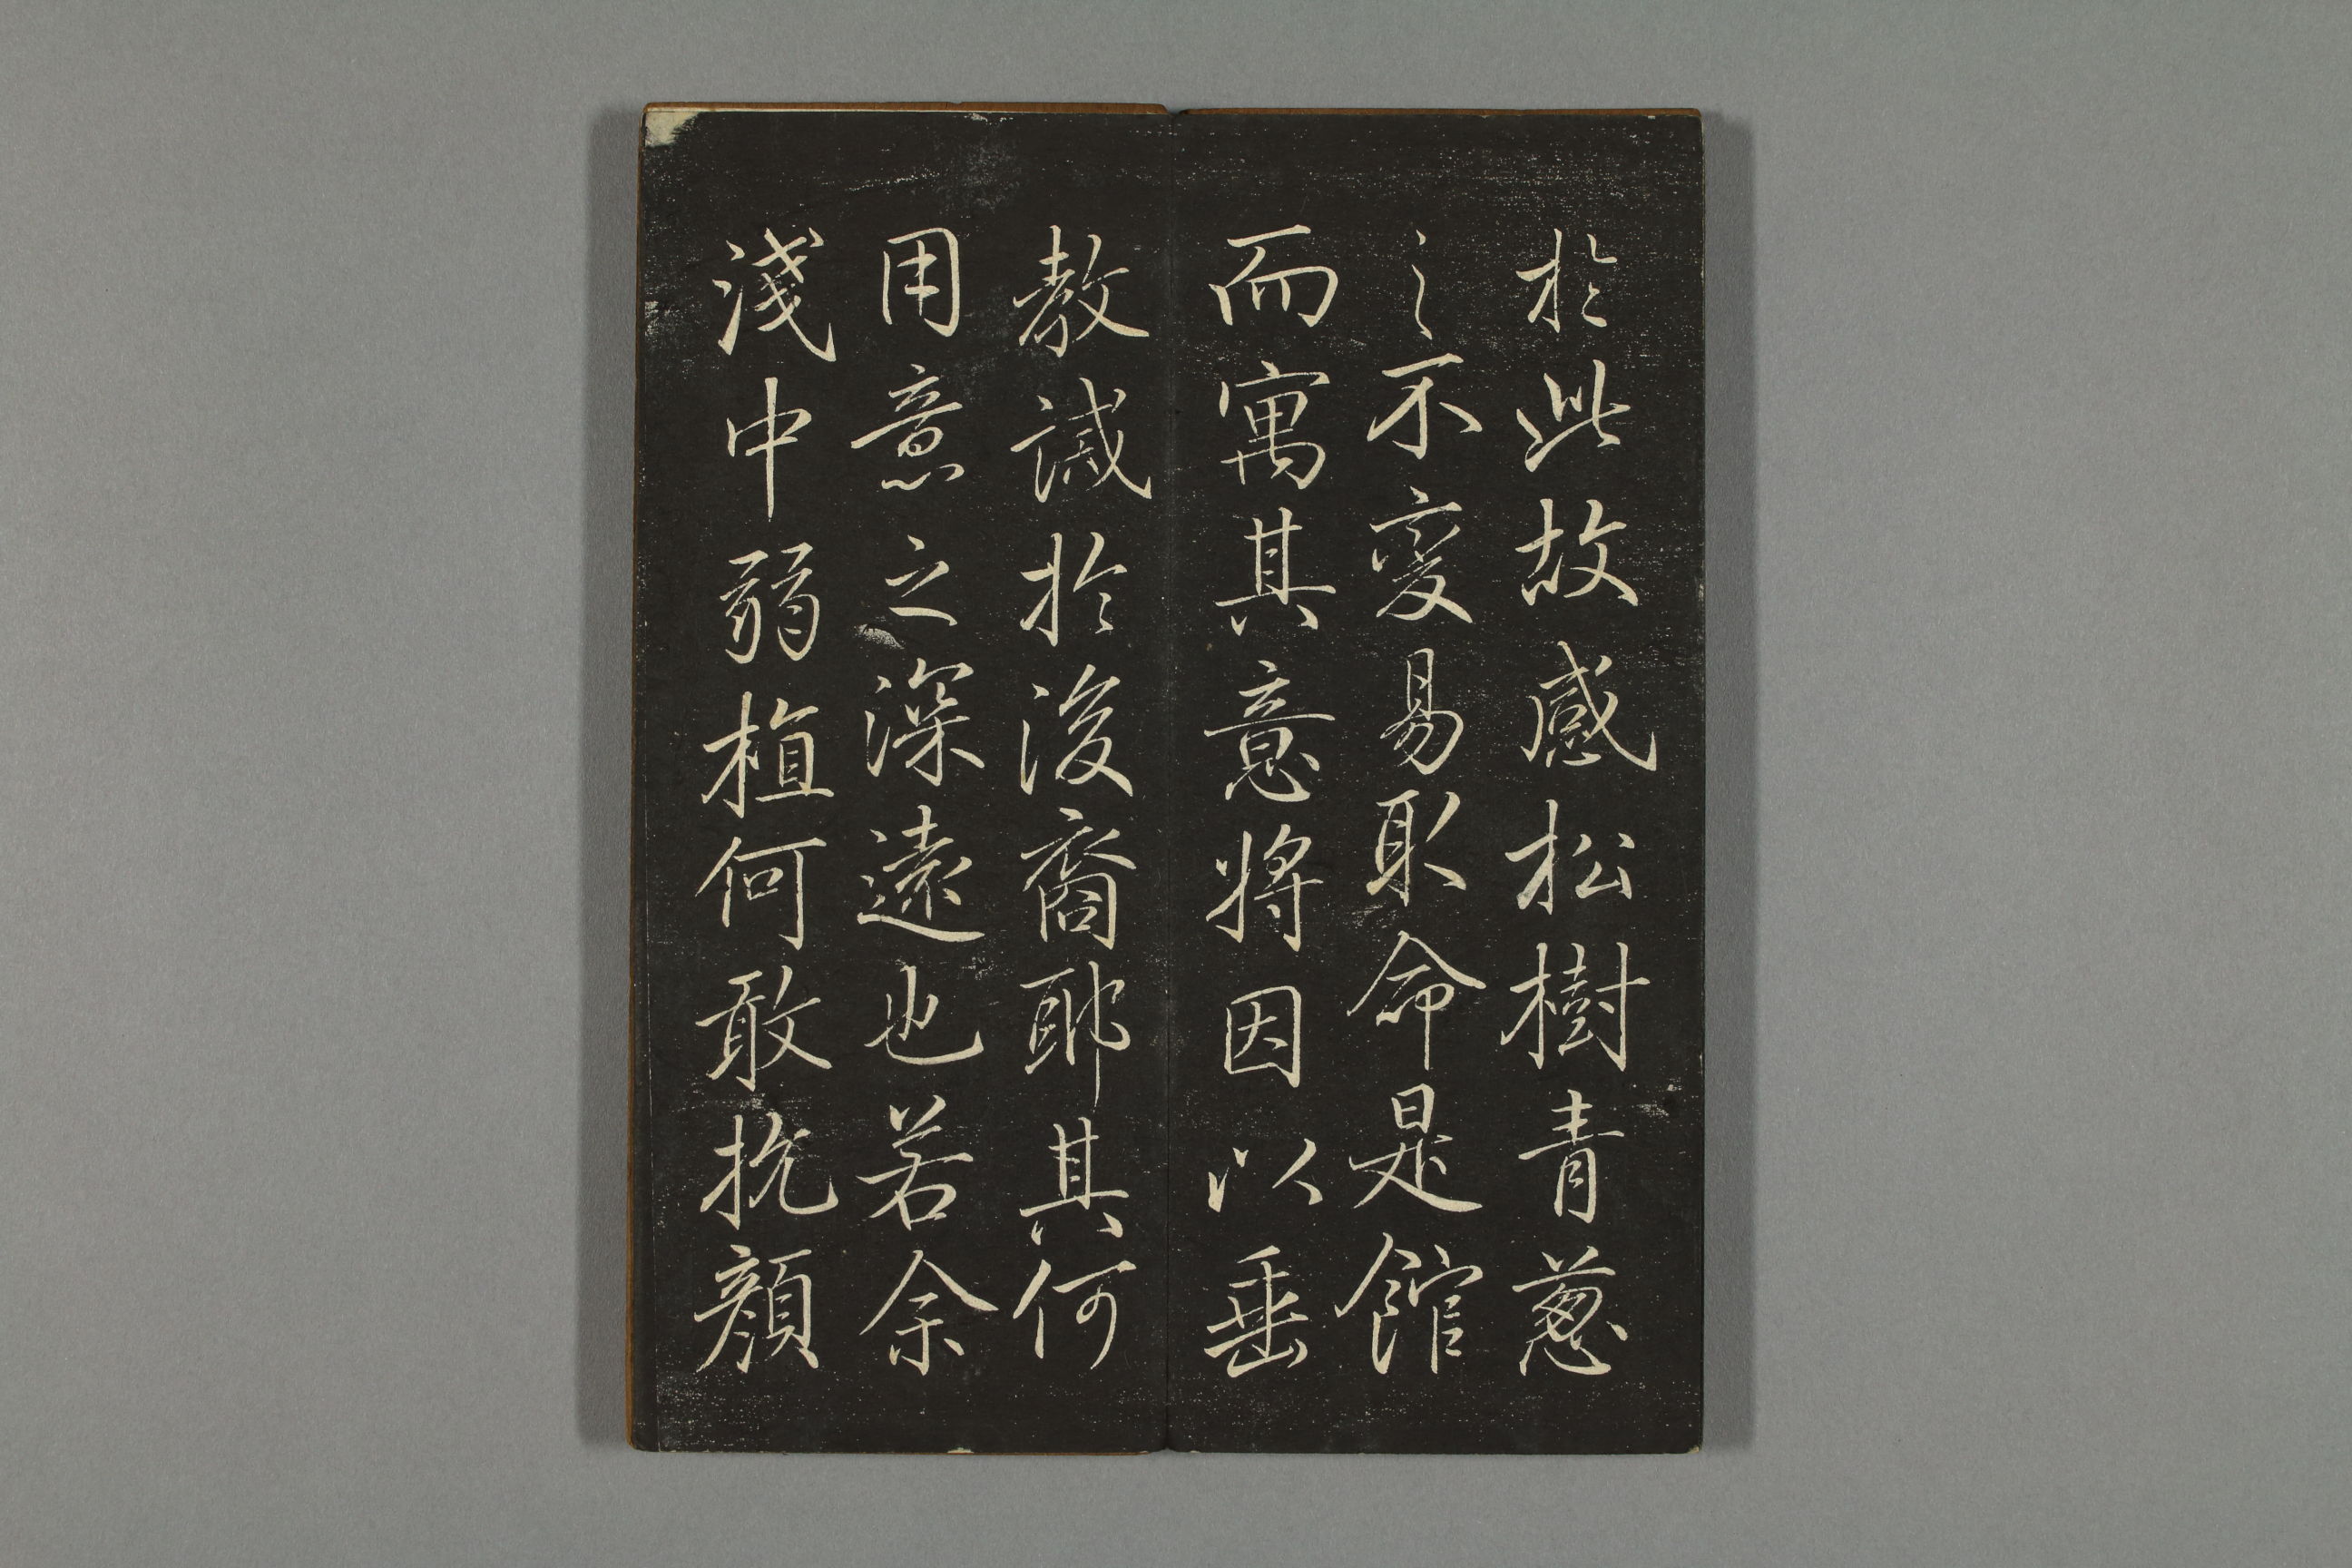 於此故感松樹青葱
之不変易取命是館
而寓其意将因以垂
教誡於後裔耶其何
用意之深遠也若余
淺中弱植何敢抗顔